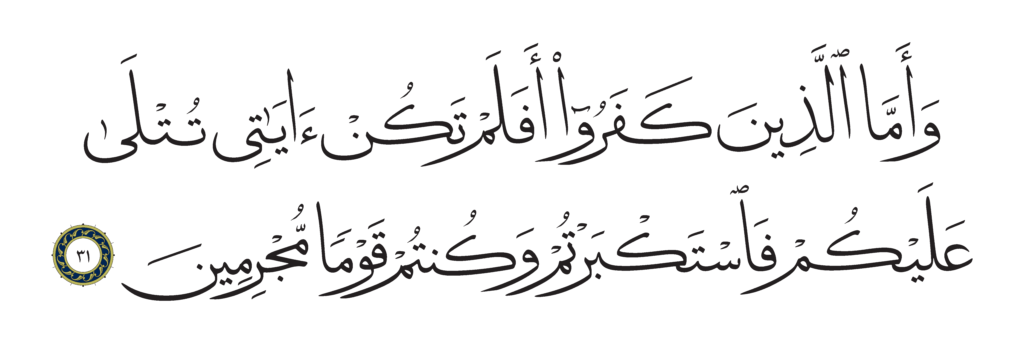 وَأَمَّا ٱلَّذِينَ كَفَرُوٓا۟ أَفَلَمْ تَكُنْ ءَايَـٰتِى تُتْلَىٰ
عَلَيْكُمْ فَٱسْتَكْبَرْتُمْ وَكُنتُمْ قَوْمًا مُّجْرِمِينَ ٣١